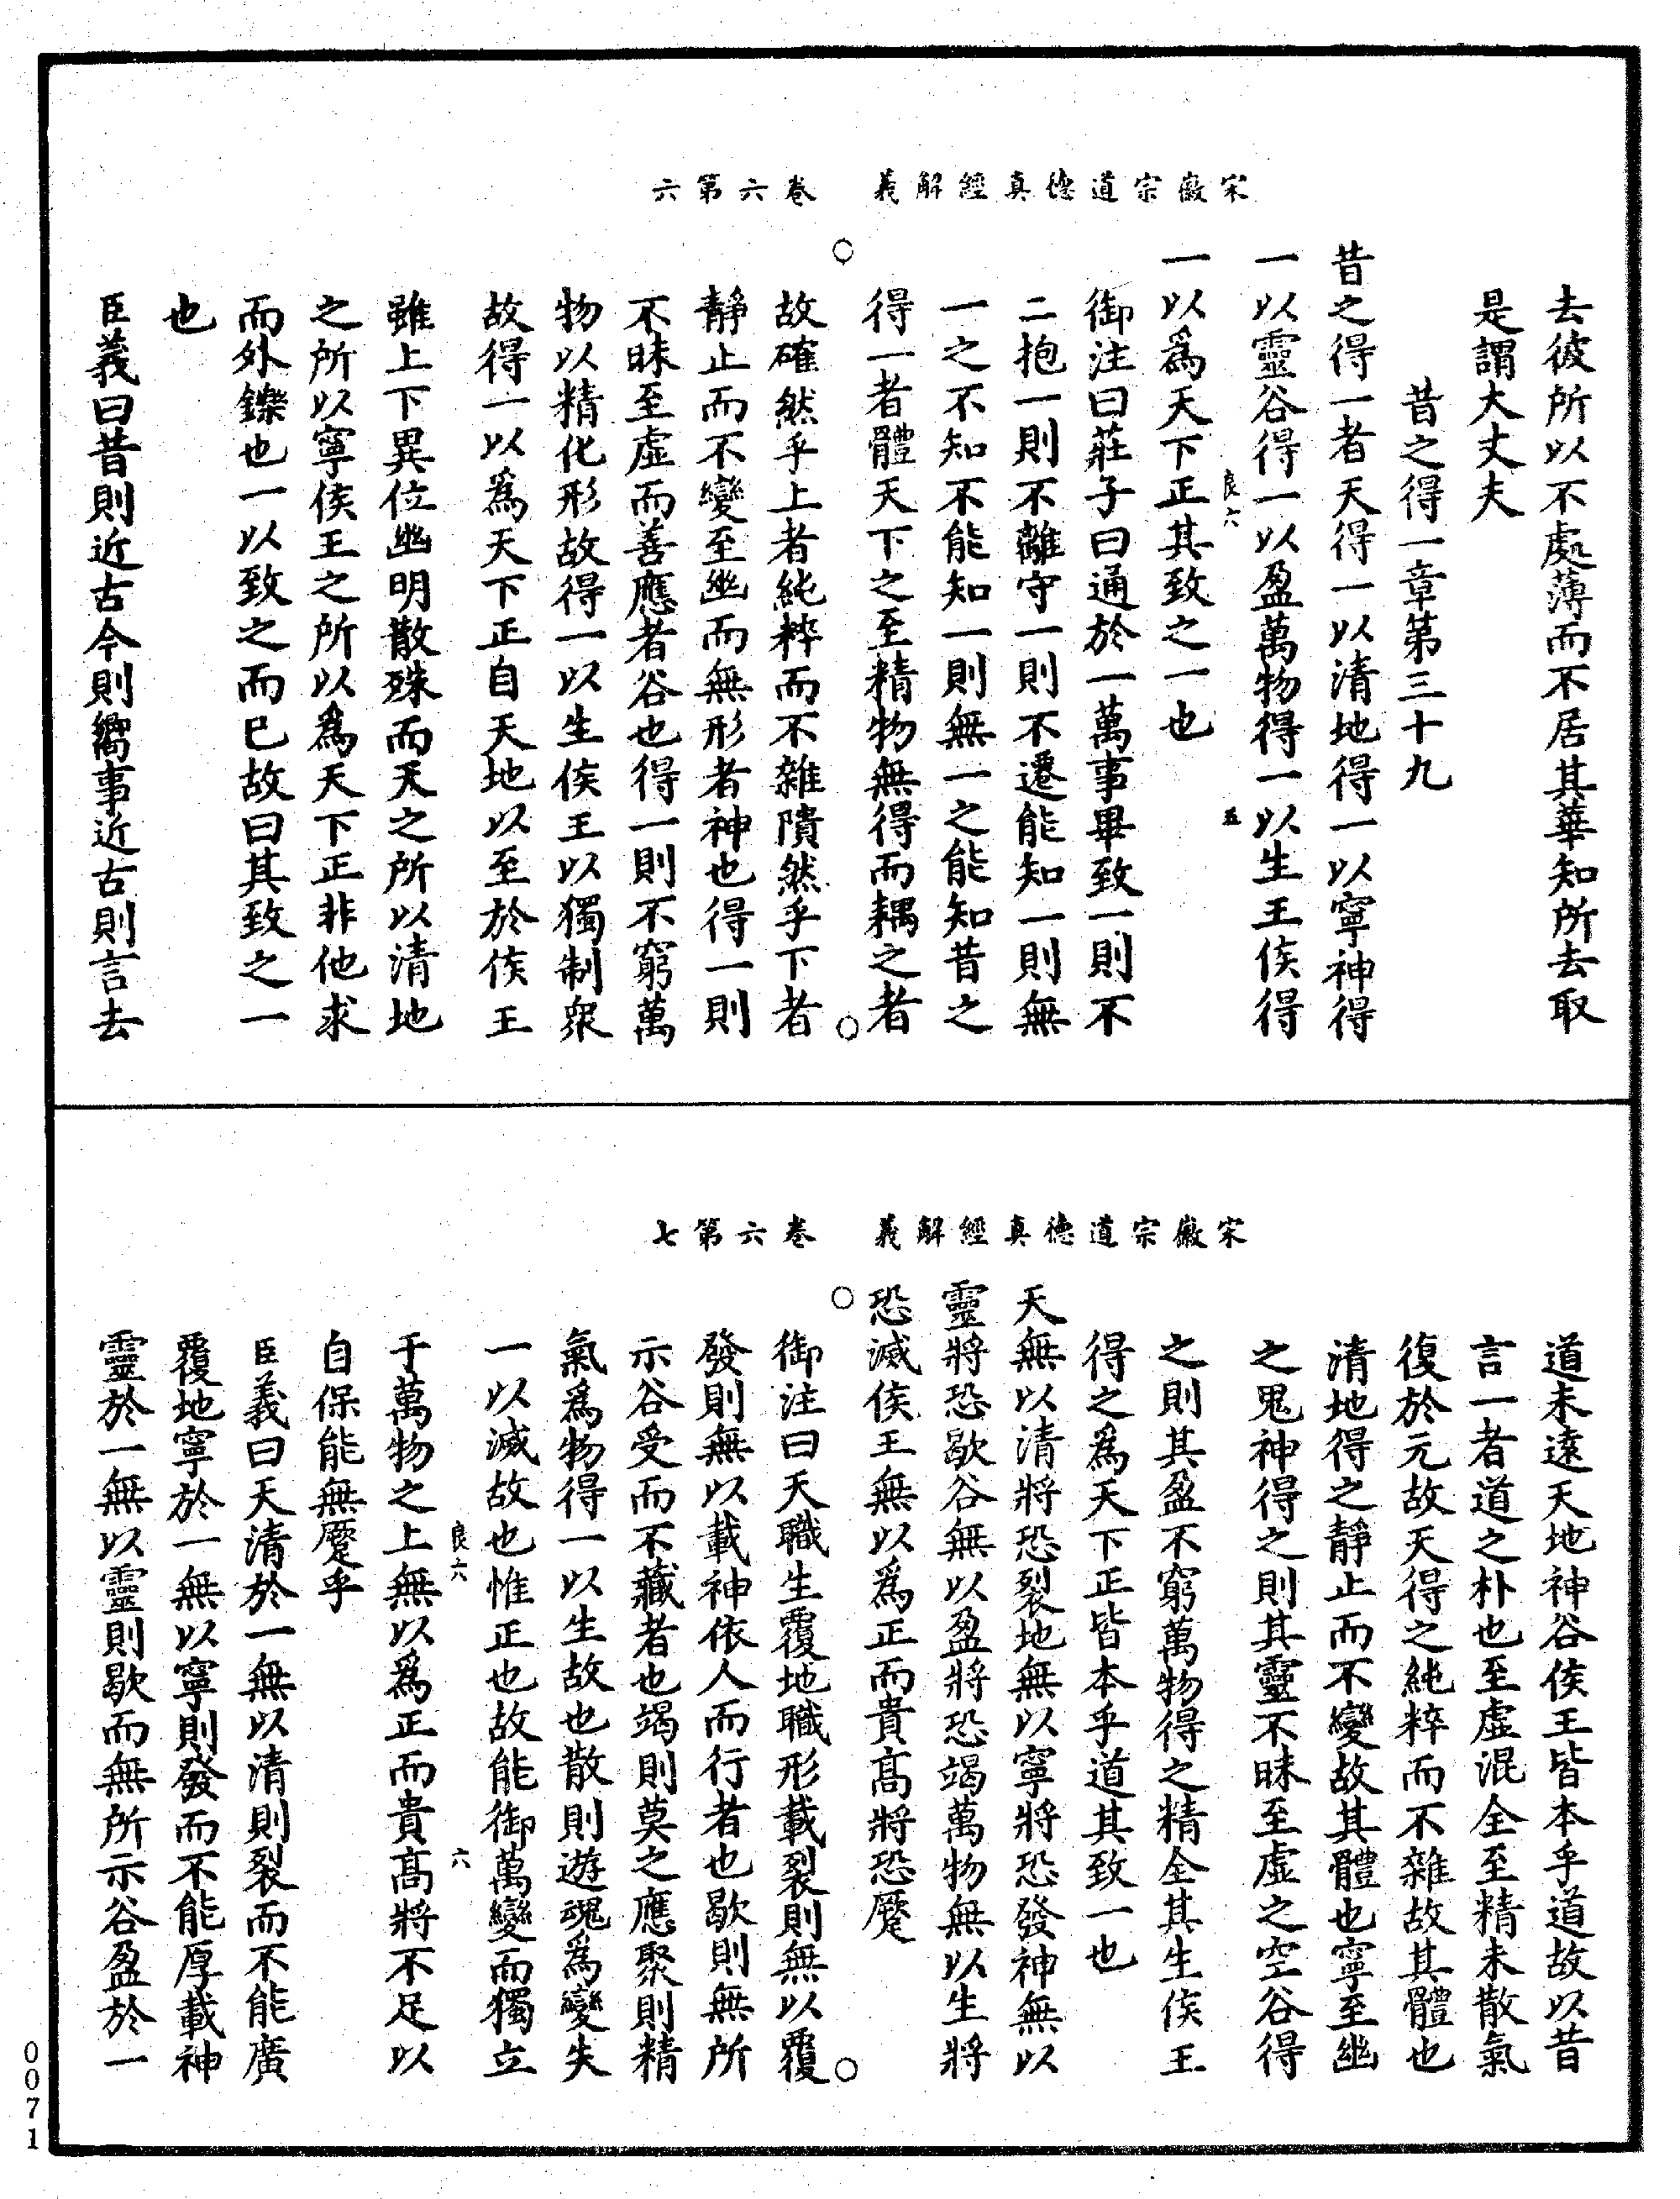 宋徽宗道德真經解義　卷六第六
去彼所以不處薄而不居其華知所去取
是謂大丈夫
昔之得一章第三十九
昔之得一者天得一以清地得一以寧神得
一以靈谷得一以盈萬物得一以生王侯得
良六　五
一以爲天下正其致之一也
御注曰莊子曰通於一萬事畢致一則不
二抱一則不離守一則不遷能知一則無
一之不知不能知一則無一之能知昔之
得一者體天下之至精物無得而耦之者
故確然乎上者純粹而不雜隤然乎下者
靜止而不變至幽而無形者神也得一則
不昧至虛而善應者谷也得一則不窮萬
物以精化形故得一以生侯王以獨制衆
故得一以爲天下正自天地以至於侯王
雖上下異位幽明散殊而天之所以清地
之所以寧侯王之所以爲天下正非他求
而外鑠也一以致之而已故曰其致之一
也
臣義曰昔則近古今則嚮事近古則言去
宋徽宗道德真經解義　卷六第七
道未遠天地神谷侯王皆本乎道故以昔
言一者道之朴也至虛混全至精未散氣
復於元故天得之純粹而不雜故其體也
清地得之靜止而不變故其體也寧至幽
之鬼神得之則其靈不昧至虛之空谷得
之則其盈不窮萬物得之精全其生侯王
得之爲天下正皆本乎道其致一也
天無以清將恐裂地無以寧將恐發神無以
靈將恐歇谷無以盈將恐竭萬物無以生將
恐滅侯王無以爲正而貴高將恐蹷
御注曰天職生覆地職形載裂則無以覆
發則無以載神依人而行者也歇則無所
示谷受而不藏者也竭則莫之應聚則精
氣爲物得一以生故也散則遊魂爲變失
一以滅故也惟正也故能御萬變而獨立
良六　六
于萬物之上無以爲正而貴高將不足以
自保能無蹷乎
臣義曰天清於一無以清則裂而不能廣
覆地寧於一無以寧則發而不能厚載神
靈於一無以靈則歇而無所示谷盈於一
0071